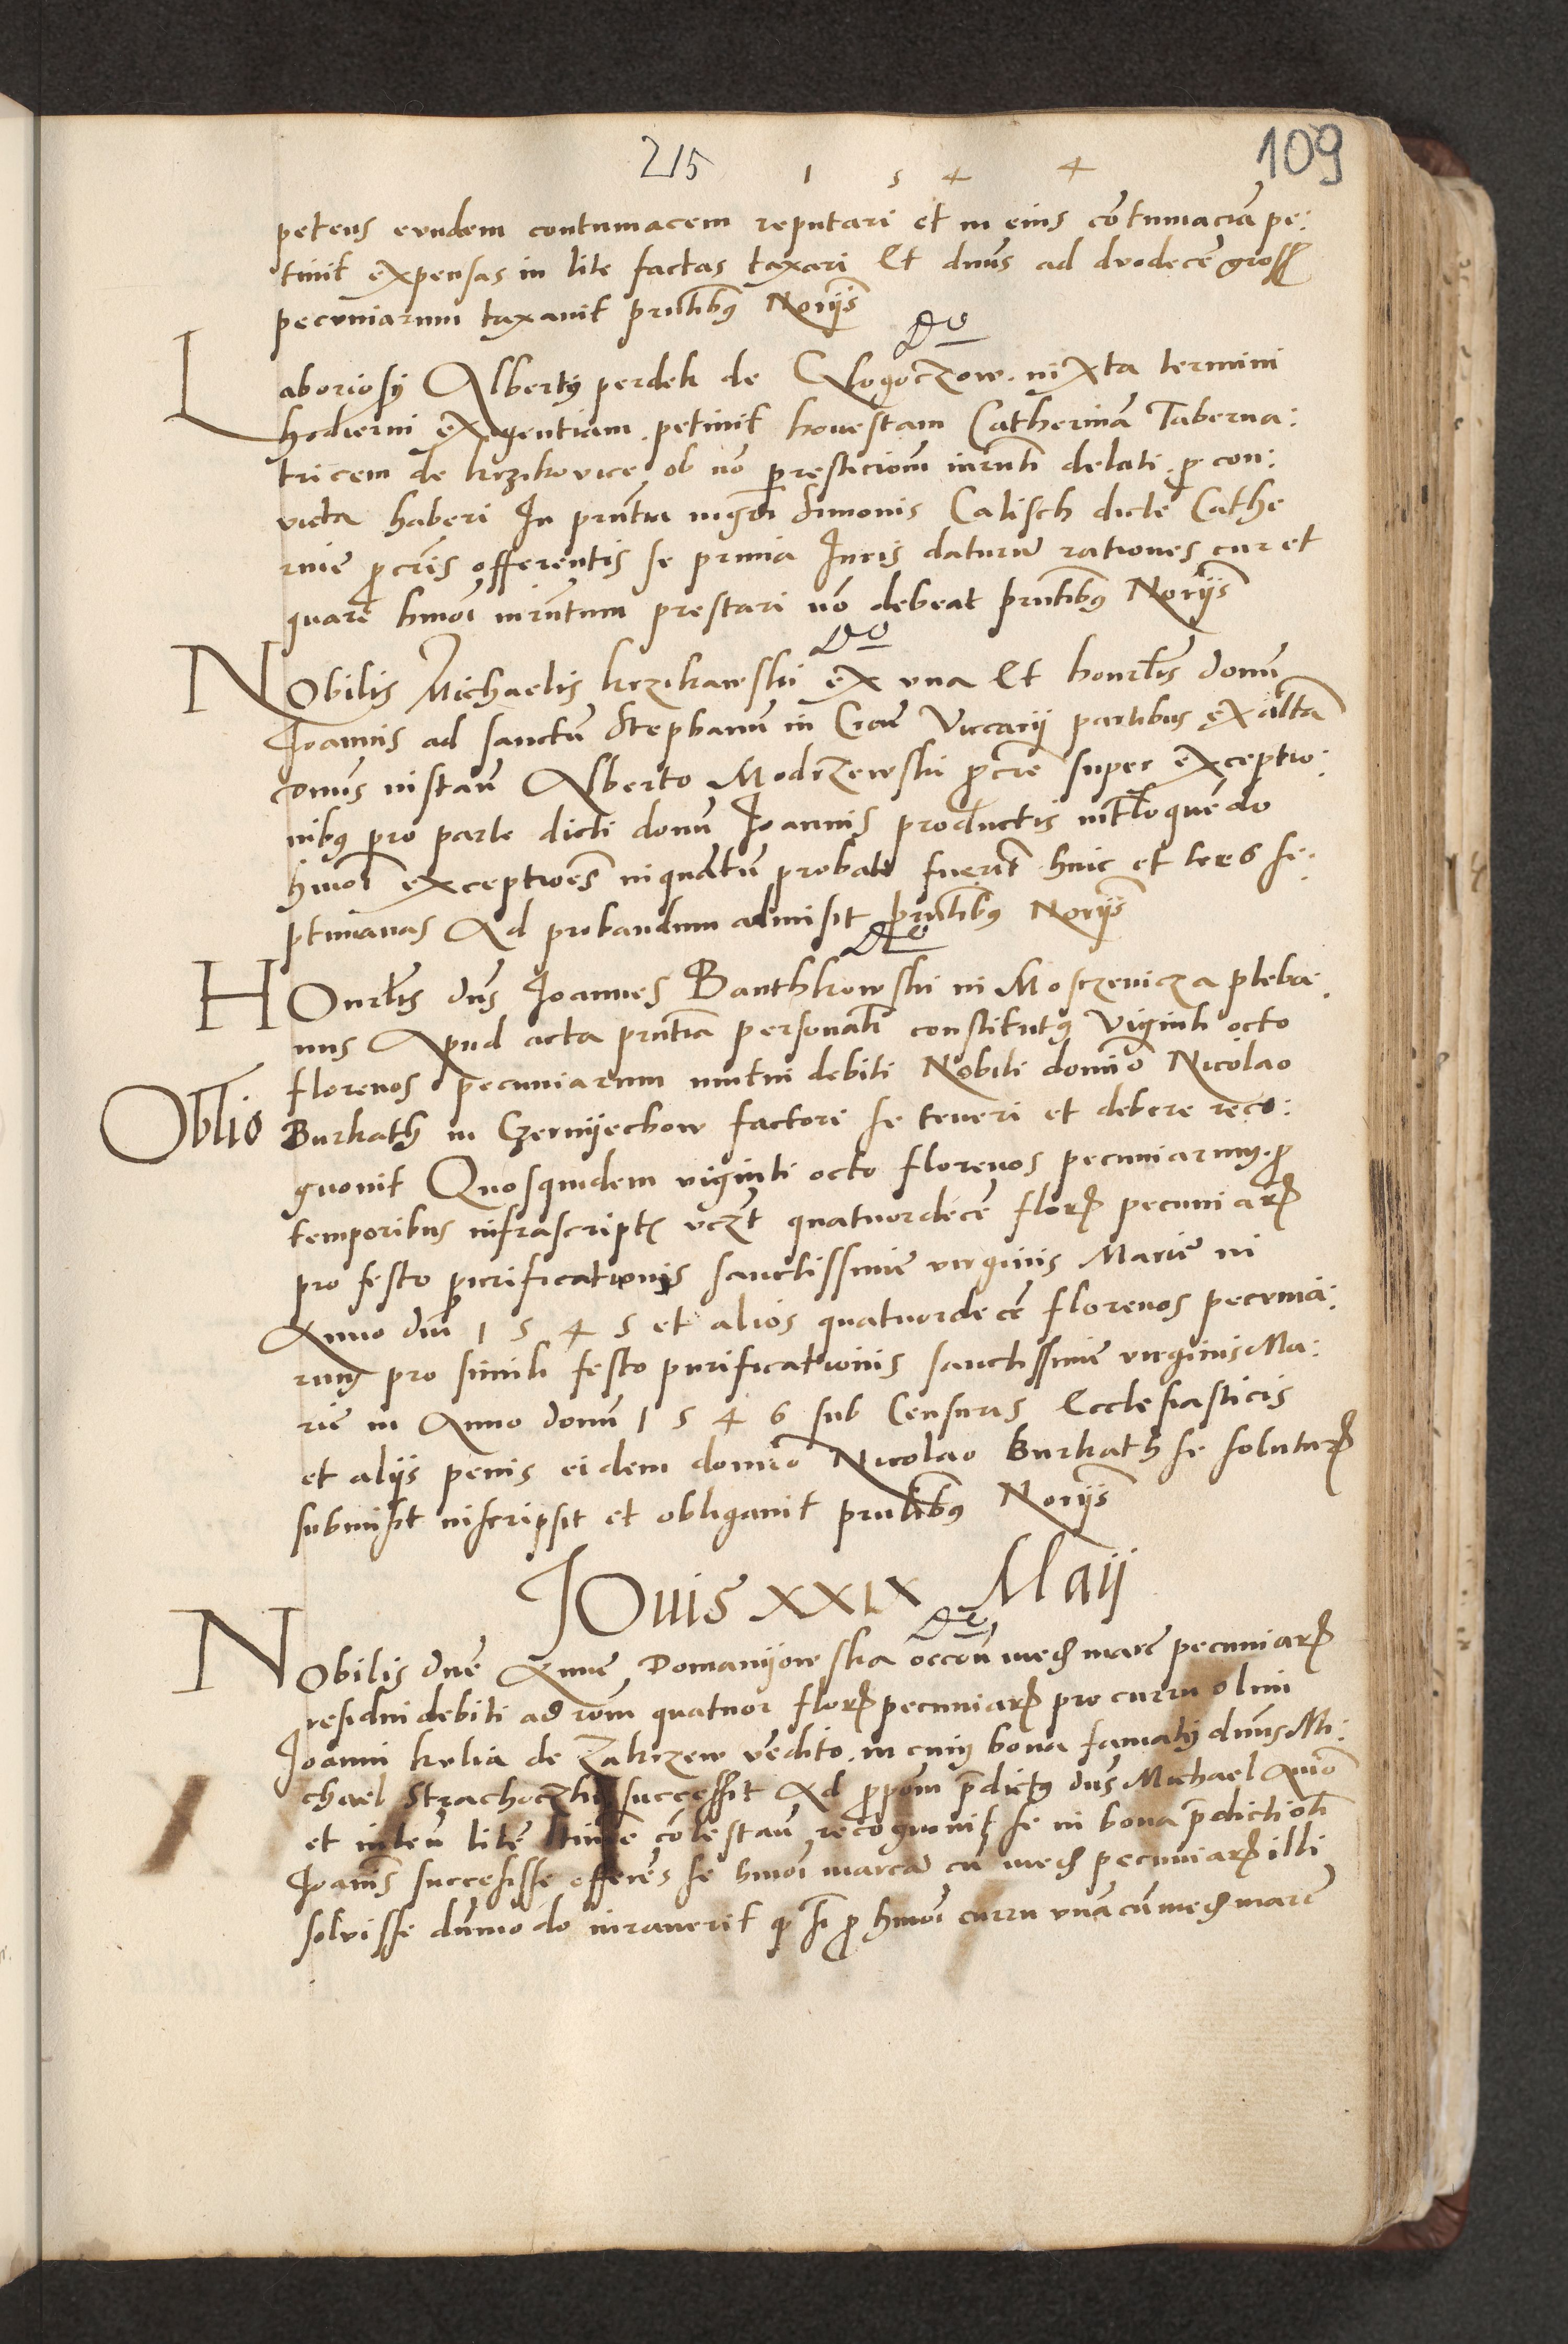 215 1 5 4 4 109
petens eundem contumacem reputari et in eius cõtumaciã pe:
tiuit expensas in lite factas taxari Et dnus ad duodecẽ gross
pecuniarum taxauit prntibus Norijs
Do
Laboriosus Albertus perdek de Glogoczow iuxta termini
hodierni exigentiam petiuit honestam Catherinã Taberna:
tricem de krzikovice ob nõ prestitionem iurnti delati pro con:
victa haberi In prntia mgri Simonis Calisch dicte Cathe
rine procris offerentis se prima Iuris daturũ rationes cur et
quare hmoi iurntum prestari nõ debeat prntibus Norijs
Do
NObilis Michaelis krzikawski ex vna Et honrlis domi
Joannis ad sanctũ Stephanũ in Crac Viccarij partibus ex altã
dnus instan Alberto Modrzewski procre super exceptio:
nibus pro parte dicti domi Joannis productis intloquendo
hmoi exceptiões inquãtũ probate fuerĩt hinc et tres se:
ptimanas Ad probandum admisit prntibus Norijs
Do
HOnrlis dns Joannes Banthkowski in Mosczenicza pleba
nus Apud acta prntia personalr constitutus Viginti octo
florenos pecuniarum mutui debiti Nobili domino Nicolao
Oblio Burkath in Czernijechow factori se teneri et debere reco:
gnouit Quosquidem viginti octo florenos pecuniarum pro
temporibus infrascriptis vczt quatuordecẽ flor pecuniar
pro festo purificationis sanctissime virginis Marie in
Anno dni 1545 et alios quatuordecẽ florenos pecunia:
rum pro simili festo purificationis sanctissime virginis Ma:
rie in Anno domi 1546 sub Censuris Ecclesiasticis
et alijs penis eidem domino Nicolao Burkath se soluturũ
submisit inscripsit et obligauit prntibus Norijs
JOuis XXIX Maij
Do
NObilis dne Anne Domanijowska occõn med marc pecuniar
residui debiti ad rõm quatuor flor pecuniar pro curru olim
Joanni kulia de Zakrzew vẽdito in cuius bona famatus dnus Mi:
chael Strachoczki successit Ad propom predictus dnus Michael Animo
et litẽ cõtestan recognouit se in bona predicti olim
Joannis successisse offerẽs se hmoi marcã cũ med pecuniar illi
soluisse dũmodo iurauerit quod si pro hmoi curru vnã cũ med marc